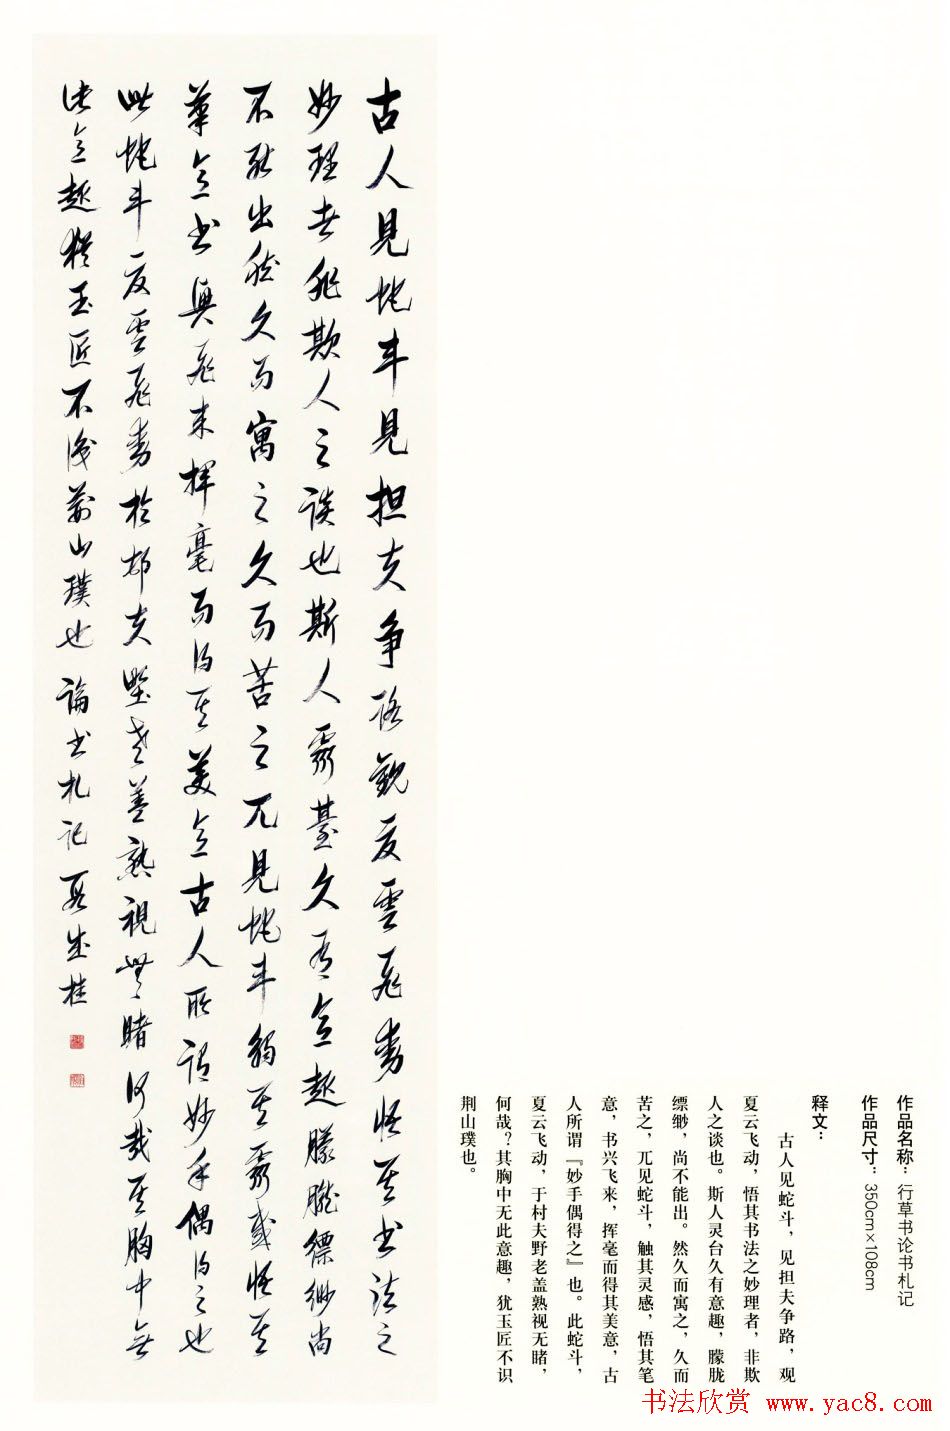 古人見蛇斗見担夫争路觀夏雲飛動悟其书法之
妙理者非欺人之談也斯人靈臺久有意趣朦朧縹緲尚
不能出然久而寓之久而苦之兀見蛇斗觸其靈感悟其
筆意书興飛来揮毫而得其美意古人所謂妙手偶得之也
此蛇斗夏雲飛動於村夫野老盖熟視無睹何哉其胸中無
此意趣猶玉匠不識荊山璞也 論书札記 段成桂
作品名称：行草书论书札记
作品尺寸：350cm×108cm
释文：
古人见蛇斗，见担夫争路，观
夏云飞动，悟其书法之妙理者，非欺
人之谈也。斯人灵台久有意趣，朦胧
缥缈，尚不能出。然久而寓之，久而
苦之，兀见蛇斗，触其灵感，悟其笔
意，书兴飞来，挥毫而得其美意，古
人所谓『妙手偶得之』也。此蛇斗，
夏云飞动，于村夫野老盖熟视无睹，
何哉？其胸中无此意趣，犹玉匠不识
荆山璞也。
书法欣赏 www.yac8.com